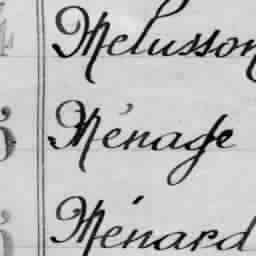 Melusson
Ménage
Ménard